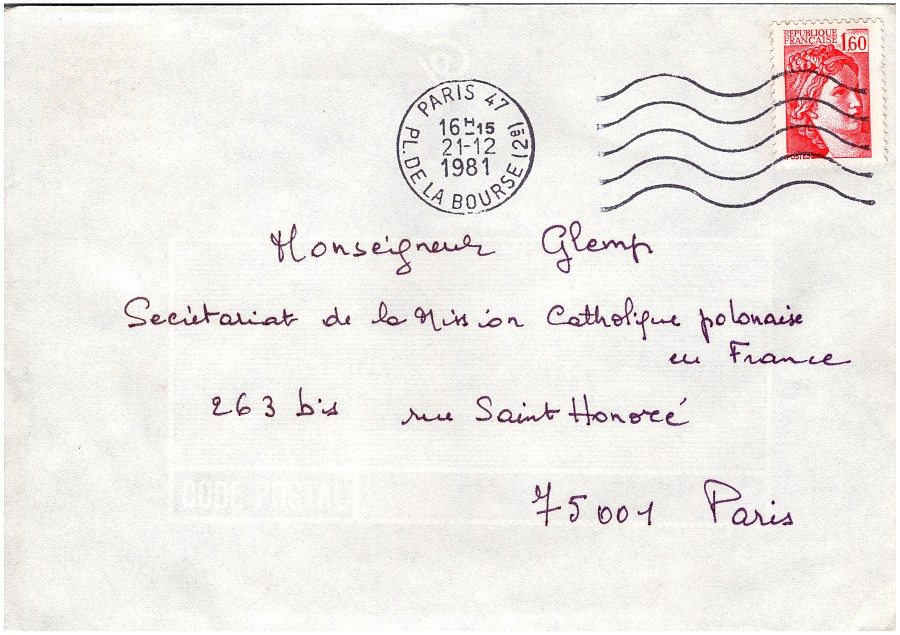 REPUBLIQUE
FRANCAISE 1,60
POSTES
PARIS 47 (2è)
16H15
21-12
1981
PL. DE LA BOURSE
Monseigneur Glemp
Secrétariat de la Mission Catholique polonaise
en France
263 bis rue Saint Honoré
75001 Paris
CODE POSTAL